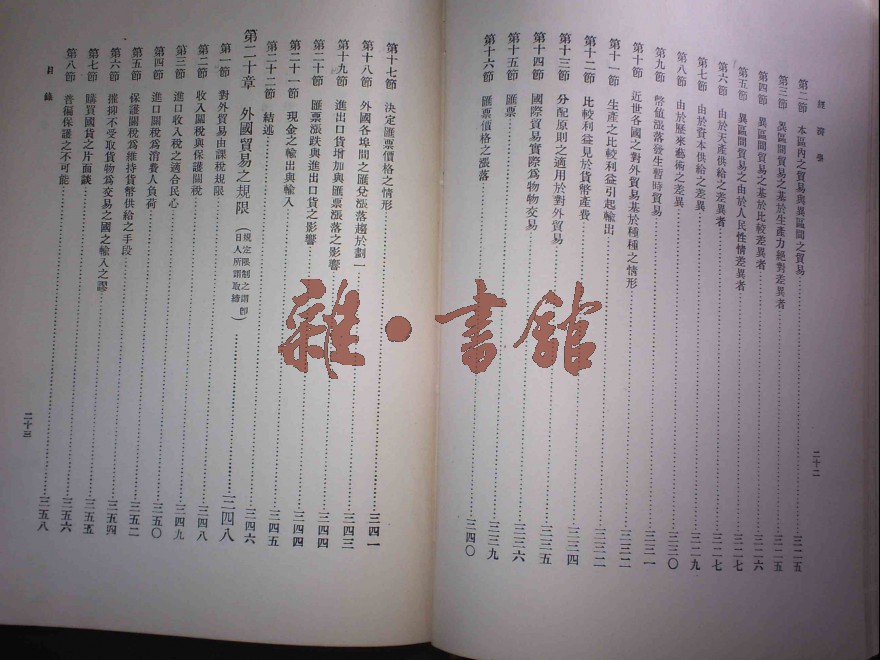 經濟學
第二節 本區內之貿易與異區間之貿易 三二五
第三節 異區間貿易之基於生產力絕對差異者 三二五
第四節 異區間貿易之基於比較差異者 三二六
第五節 異區間貿易之由於人民性情差異者 三二七
第六節 由於天產供給之差異者 三二七
第七節 由於資本供給之差異 三二九
第八節 由於歷來藝術之差異 三三〇
第九節 幣值漲落發生暫時貿易 三三一
第十節 近世各國之對外貿易基於種種之情形 三三二
第十一節 生產之比較利益引起輸出 三三二
第十二節 比較利益見於貨幣產費 三三二
第十三節 分配原則之適用於對外貿易 三三四
第十四節 國際貿易實際爲物物交易 三三五
第十五節 匯票 三三六
第十六節 匯票價格之漲落 三三九
三四〇
二十二
第十七節 決定匯票價格之情形 三四一
第十八節 外國各埠間之匯兌漲落趨於劃一 三四三
第十九節 進出口貨增加與匯票漲落之影響 三四四
第二十節 匯票漲跌與進出口貨之影響 三四四
第二十一節 現金之輸出與輸入 三四五
第二十二節 結述 三四六
第二十章 外國貿易之規限(規定限制之謂卽日人所謂取締) 三四八
第一節 對外貿易由課稅規限 三四八
第二節 收入關稅與保護關稅 三四九
第三節 進口收入稅之適合民心 三五〇
第四節 進口關稅爲消費人負荷 三五二
第五節 保護關稅爲維持貨幣供給之手段 三五四
第六節 摧抑不受取貨物爲交易之國之輸入之謬 三五五
第七節 購買國貨之片面談 三五六
第八節 普徧保護之不可能 三五八
目錄
二十三
雜·書館